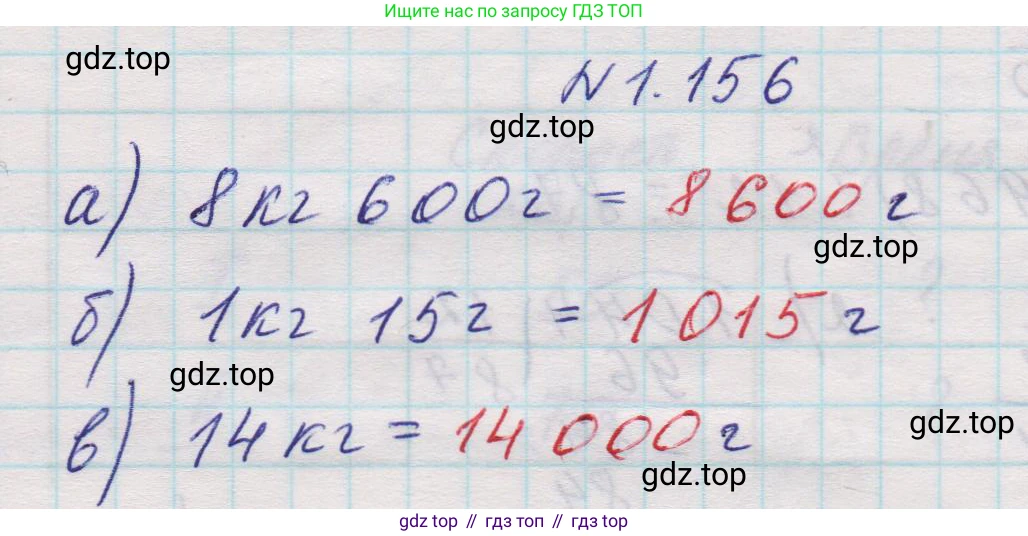 Ищите нас по запросу ГДЗ ТОП
gdz.top
N 1.156
gdz.top
а) 8 кг 600 г = 8 600 г
gdz.top
б) 1 кг 15 г = 1 015 г
gdz.top
в) 14 кг = 14 000 г
gdz.top
gdz.top
gdz top // гдз топ // gdz top